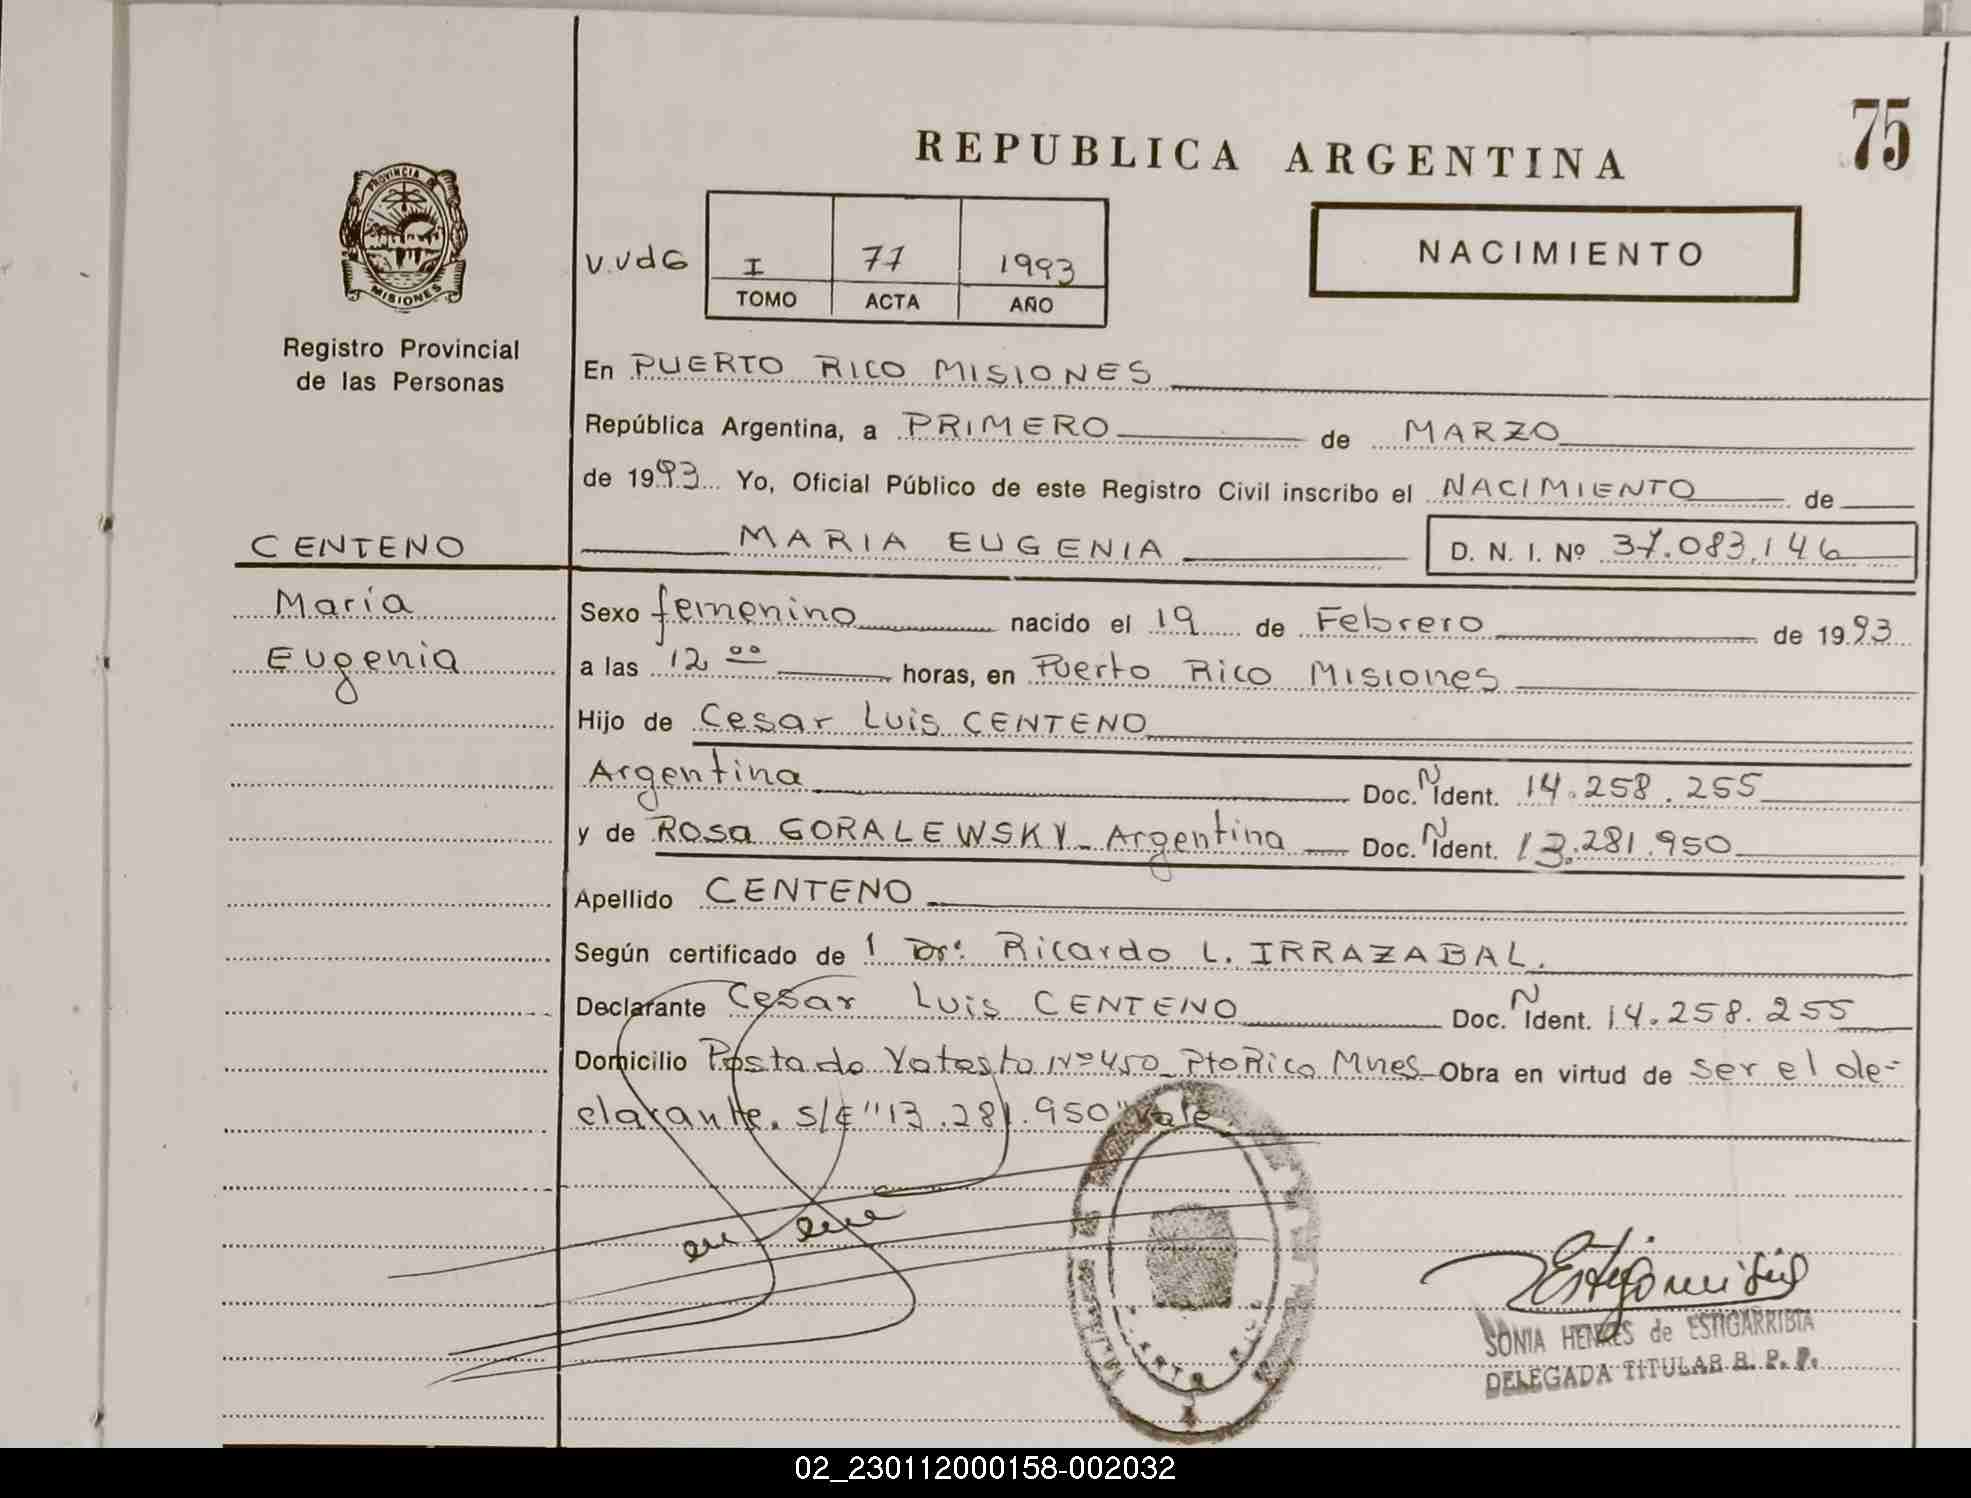 75
REPUBLICA ARGENTINA
PROVINCIA DE
MISIONES
Registro Provincial
de las Personas
V.VdG
I 77 1993
TOMO ACTA AÑO
NACIMIENTO
En PUERTO RICO MISIONES
República Argentina, a PRIMERO de MARZO
de 1993 Yo, Oficial Público de este Registro Civil inscribo el NACIMIENTO de
CENTENO
MARIA EUGENIA D. N. I. Nº 37.083.146
María
Eugenia
Sexo femenino nacido el 19 de Febrero de 1993
a las 12 00 horas, en Puerto Rico Misiones
Hijo de Cesar Luis CENTENO
Argentina Doc. N Ident. 14.258.255
y de Rosa GORALEWSKY - Argentina Doc. N Ident. 13.281.950
Apellido CENTENO
Según certificado de 1 Dr. Ricardo L. IRRAZABAL.
Declarante Cesar Luis CENTENO Doc. N Ident. 14.258.255
Domicilio Posta do Yatasto Nº 450 Pto Rico Mnes Obra en virtud de ser el de-
clarante. S/E "13.281.950" vale
SONIA HENKES de ESTIGARRIBIA
DELEGADA TITULAR R. P. P.
02_230112000158-002032